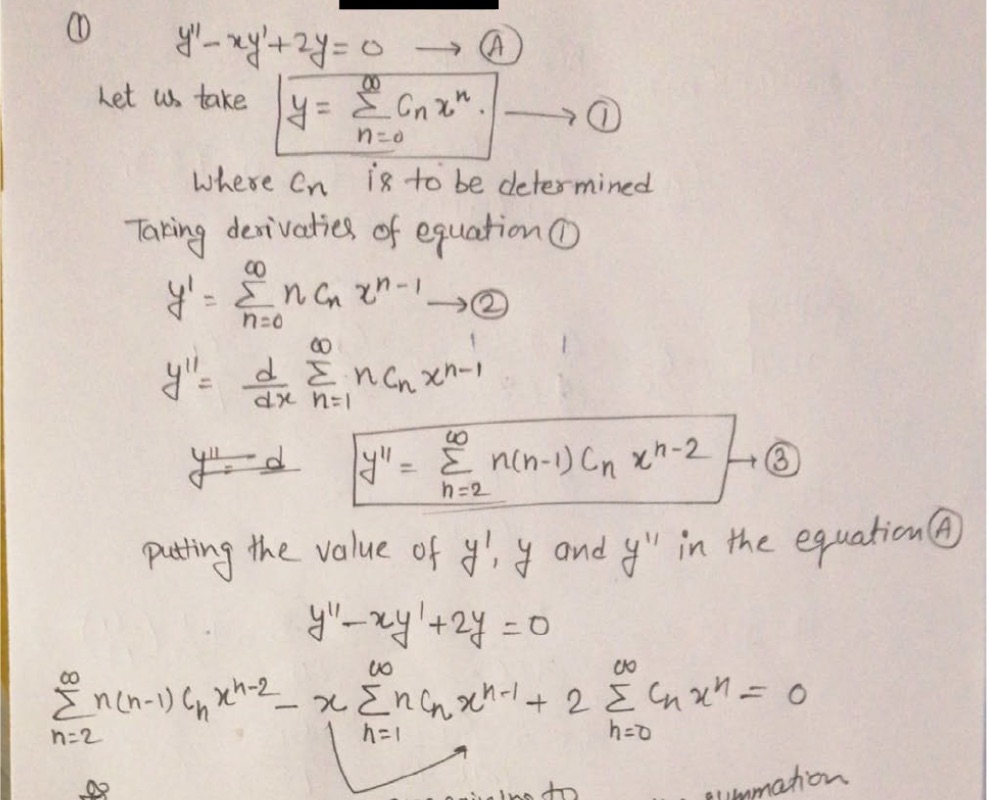 ① y'' - xy' + 2y = 0 → Ⓐ
Let us take y = ∑_{n=0}^{∞} Cₙ xⁿ. → ①
where Cn is to be determined
Taking derivaties of equation ①
y' = ∑_{n=0}^{∞} n Cₙ xⁿ⁻¹ → ②
y'' = d/dx ∑_{n=1}^{∞} n Cₙ xⁿ⁻¹
y'' = d y'' = ∑_{n=2}^{∞} n(n-1) Cₙ xⁿ⁻² → ③
putting the value of y', y and y'' in the equation Ⓐ
y'' - xy' + 2y = 0
∑_{n=2}^{∞} n(n-1) Cₙ xⁿ⁻² - x ∑_{n=1}^{∞} n Cₙ xⁿ⁻¹ + 2 ∑_{n=0}^{∞} Cₙ xⁿ = 0
to summation